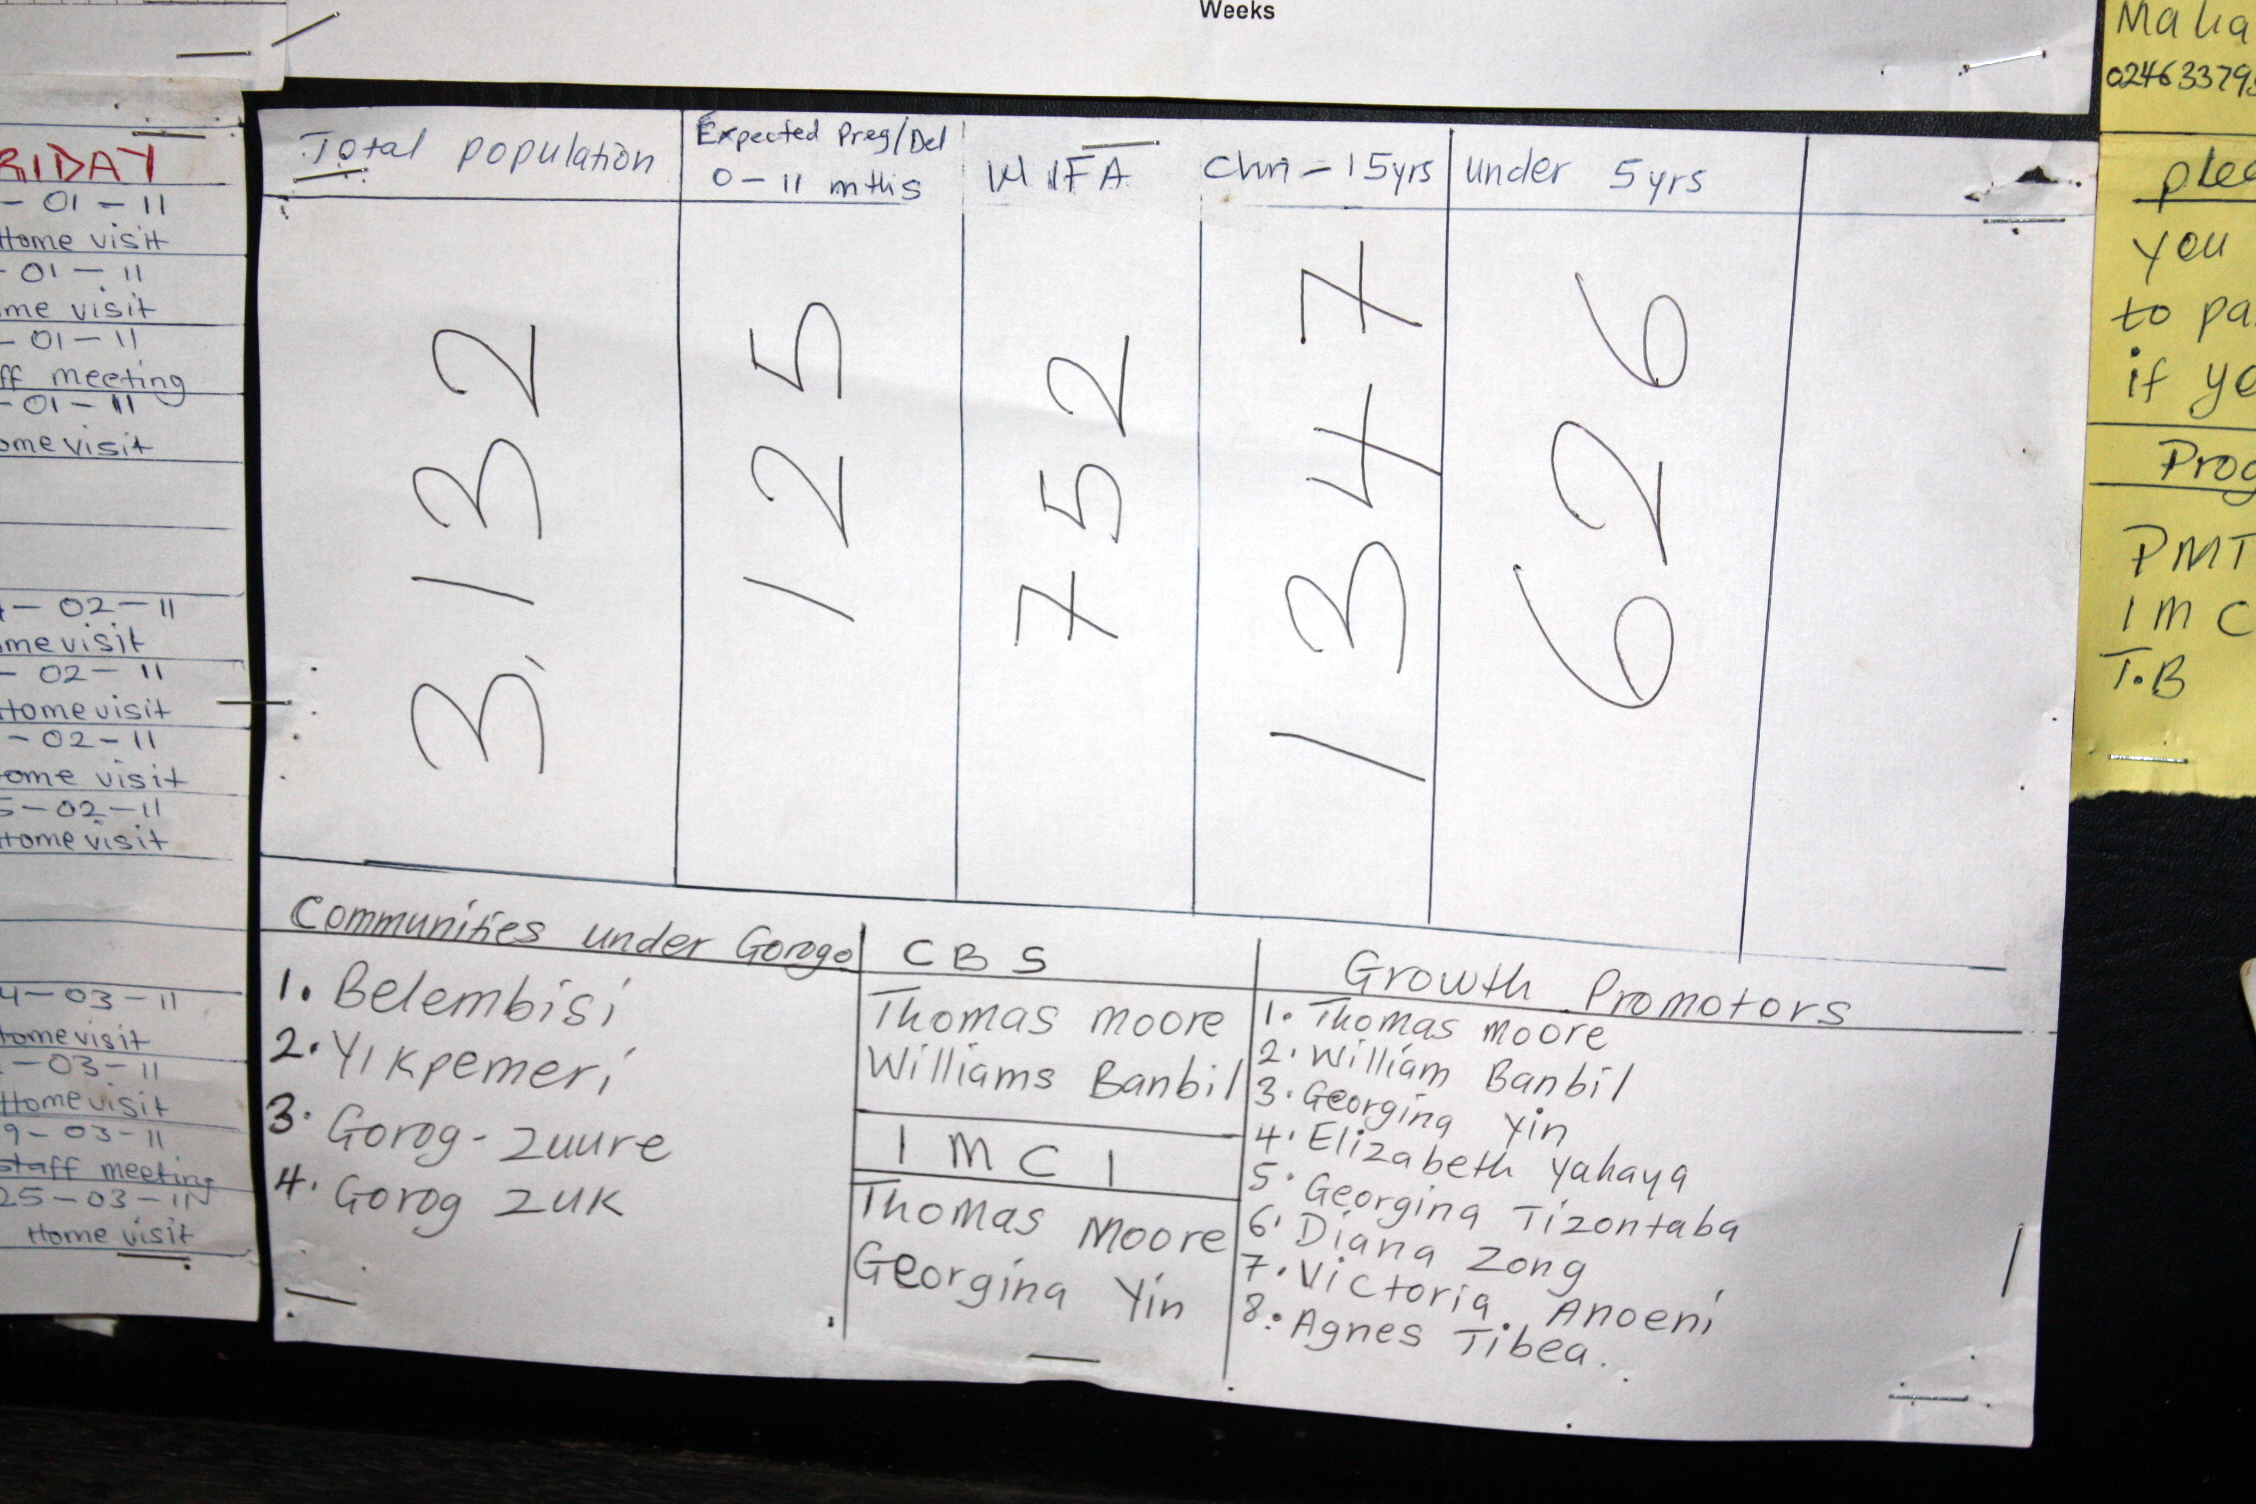 Weeks
RIDAY
- 01 - 11
Home visit
- 01 - 11
me visit
- 01 - 11
ff meeting
- 01 - 11
ome visit
- 02 - 11
me visit
- 02 - 11
Home visit
- 02 - 11
ome visit
5 - 02 - 11
Home visit
4 - 03 - 11
Home visit
- 03 - 11
Home visit
9 - 03 - 11
staff meeting
25 - 03 - 11
Home visit
Total population
Expected Preg/Del
0 - 11 mths
WIFA
Chn - 15yrs
under 5yrs
3,132
125
752
1347
626
Communities under Gorogo
1. Belembisi
2. Yikpemeri
3. Gorog-Zuure
4. Gorog Zuk
CBS
Thomas Moore
Williams Banbil
IMCI
Thomas Moore
Georgina Yin
Growth Promotors
1. Thomas Moore
2. William Banbil
3. Georgina Yin
4. Elizabeth Yahaya
5. Georgina Tizontaba
6. Diana Zong
7. Victoria. Anoeni
8. Agnes Tibea.
Maha
02463379
plea
you
to pa
if yo
Prog
PMT
IMC
T.B